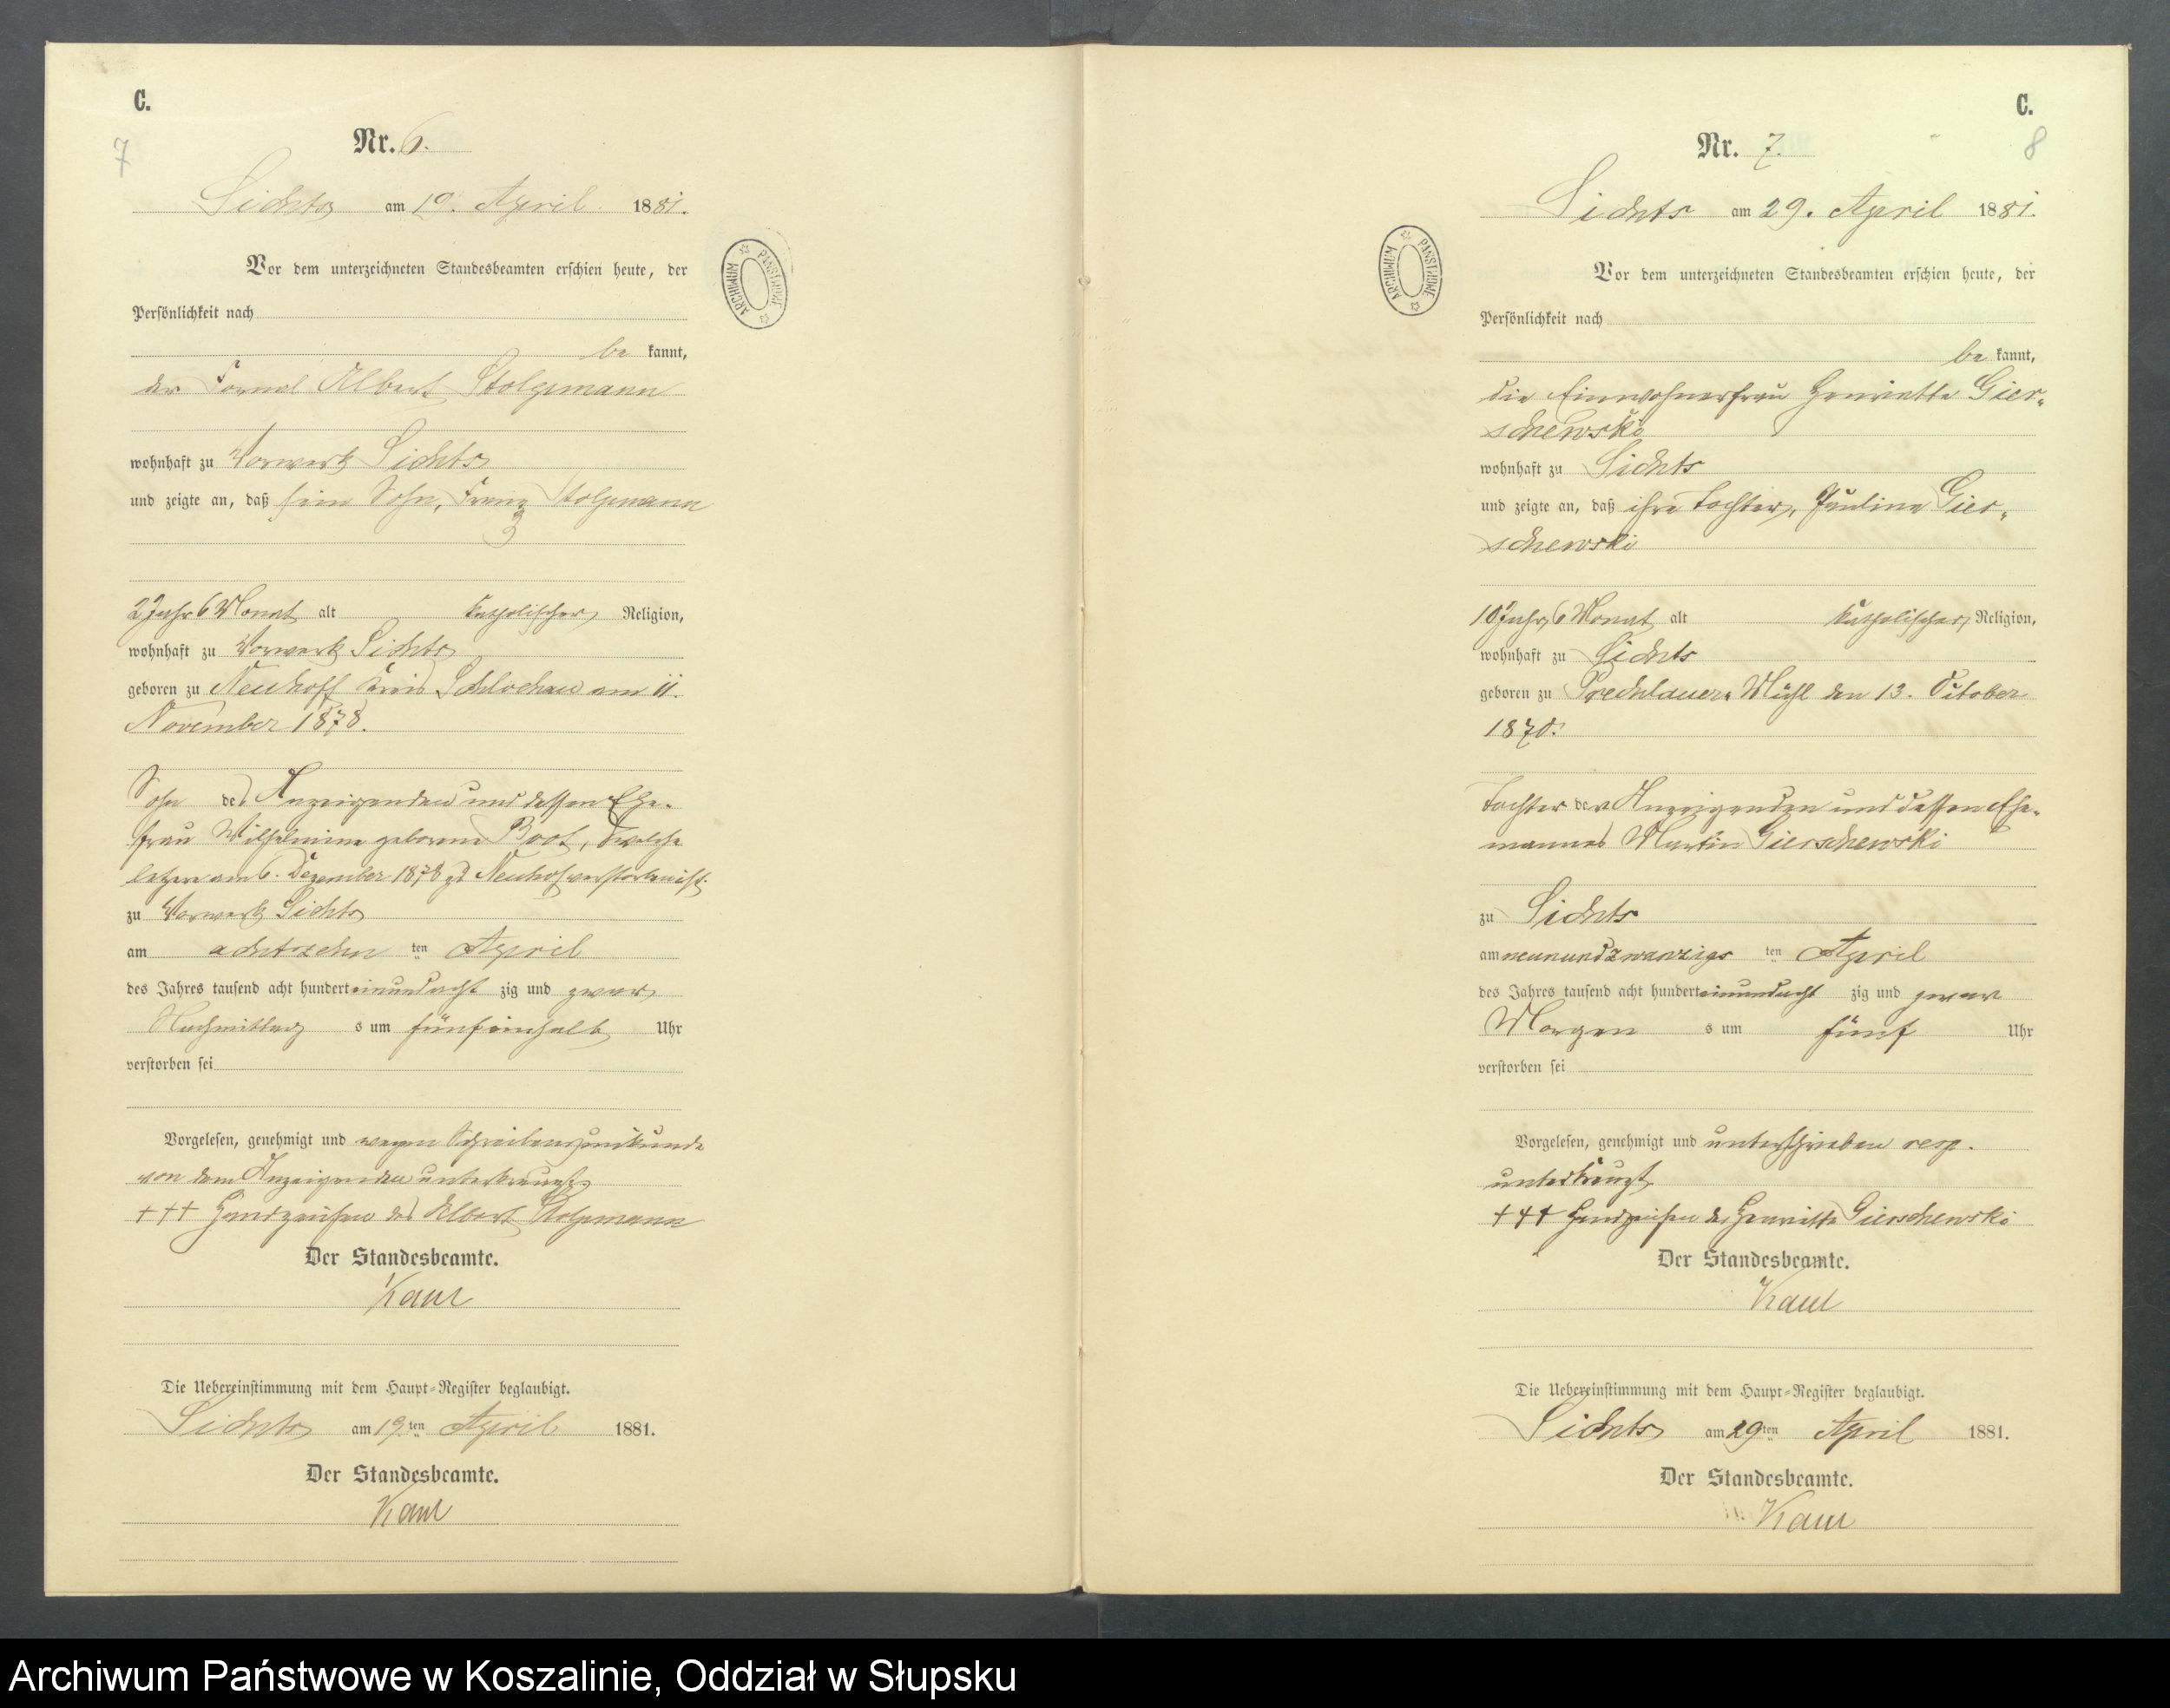 C.
7
Nr. 6.
Sichts am 19. April 1881.
Vor dem unterzeichneten Standesbeamten erschien heute, der
Persönlichkeit nach
be kannt,
der Fornal Albert Stolpmann
wohnhaft zu Vorwerk Sichts
und zeigte an, daß sein Sohn, Franz Stolpmann
2 Jahr 6 Monat alt katholischer Religion,
wohnhaft zu Vorwerk Sichts
geboren zu Neuhoff Kreis Schlochau am 11.
November 1878.
Sohn des Anzeigenden und dessen Ehe-
frau Wilhelmine geborene Boot, welche
letzere am 6. Dezember 1878 zu Neuhof verstorben ist.
zu Vorwerk Sichts
am achtzehn ten April
des Jahres tausend acht hundert einundacht zig und zwar
Nachmittag s um fünfeinhalb Uhr
verstorben sei
Vorgelesen, genehmigt und wegen Schreibensunkunde
von dem Anzeigenden unterkreuzt
+++ Handzeichen des Albert Stolpmann
Der Standesbeamte.
Kaul
Die Uebereinstimmung mit dem Haupt-Register beglaubigt.
Sichts am 19 ten April 1881.
Der Standesbeamte.
Kaul
ARCHIWUM PAŃSTWOWE
C.
8
Nr. 7.
Sichts am 29. April 1881.
Vor dem unterzeichneten Standesbeamten erschien heute, der
Persönlichkeit nach
be kannt,
die Einwohnerfrau Henriette Gier-
schewski
wohnhaft zu Sichts
und zeigte an, daß ihre Tochter, Pauline Gier-
schewski
10 Jahr, 6 Monat alt katholischer Religion,
wohnhaft zu Sichts
geboren zu Prechlauer-Mühl den 13. October
1870.
Tochter der Anzeigenden und dessen Ehe-
mannes Martin Gierschewski
zu Sichts
am neunundzwanzigs ten April
des Jahres tausend acht hundert einundacht zig und zwar
Morgen s um fünf Uhr
verstorben sei
Vorgelesen, genehmigt und unterschrieben resp.
unterkreuzt
+++ Handzeichen der Henriette Gierschewski
Der Standesbeamte.
Kaul
Die Uebereinstimmung mit dem Haupt-Register beglaubigt.
Sichts am 29 ten April 1881.
Der Standesbeamte.
Kaul
ARCHIWUM PAŃSTWOWE
Archiwum Państwowe w Koszalinie, Oddział w Słupsku